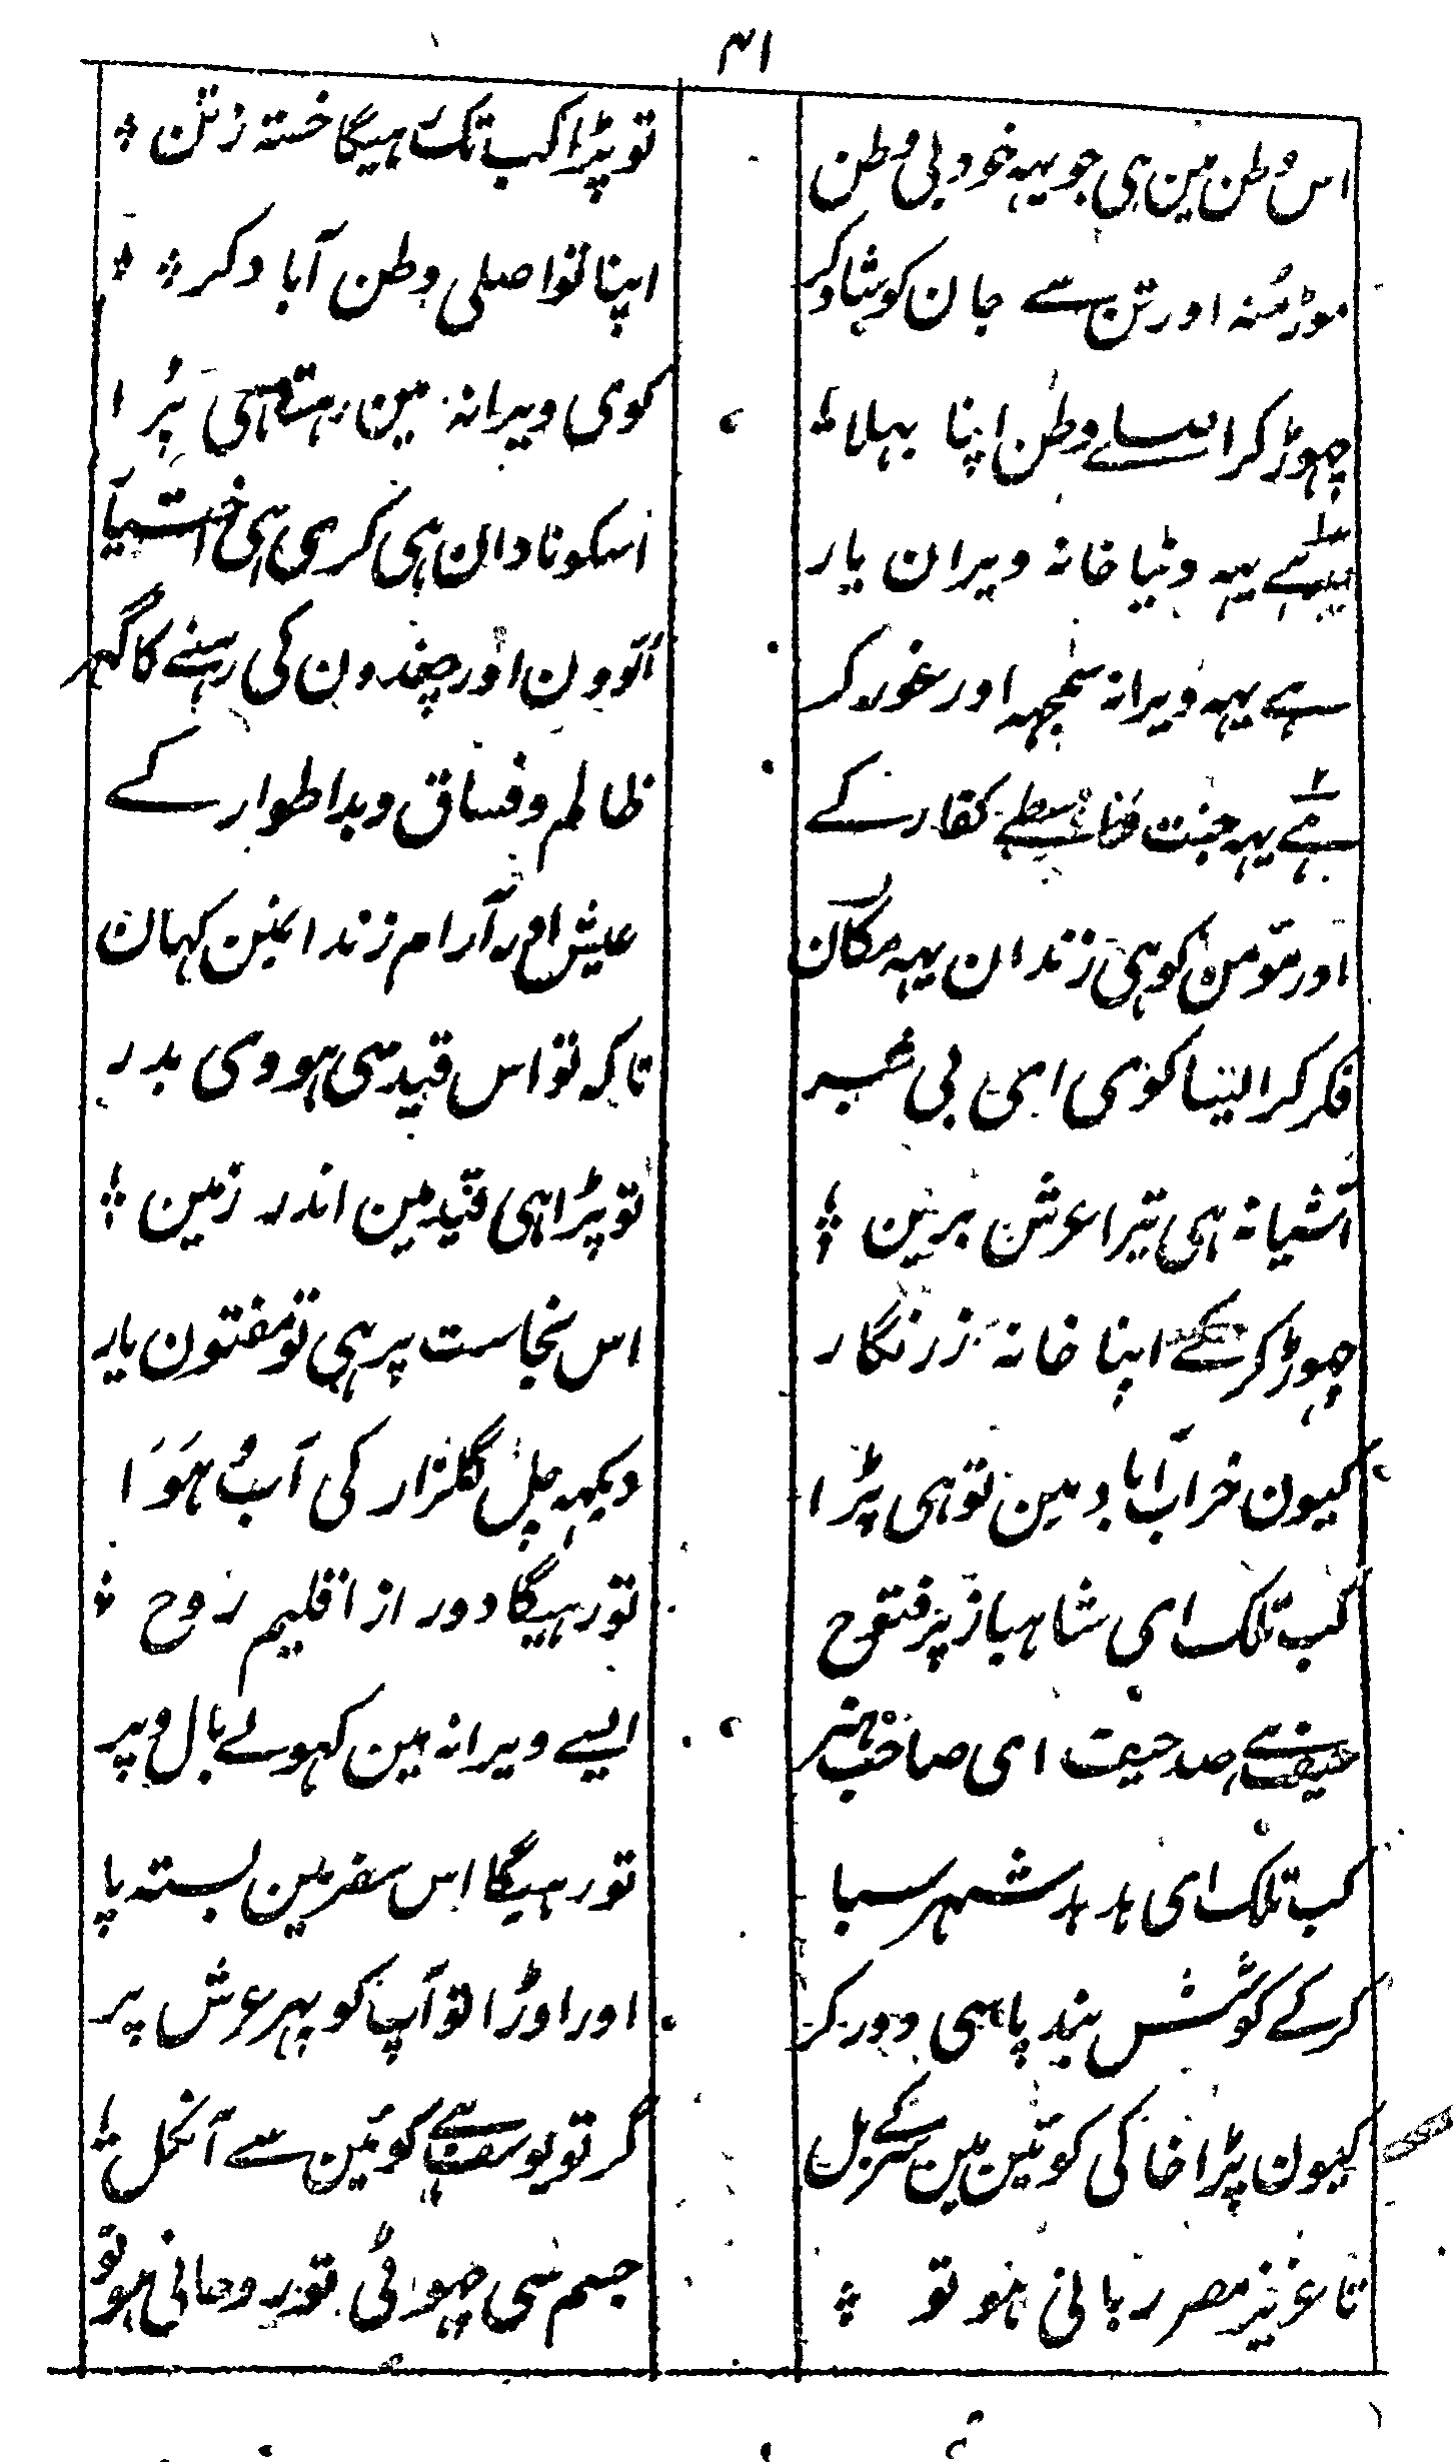 ۴۱
اس وطن مین ہی جو یہہ خود بی وطن
تو پڑا کب تک رہیگا خستہ تن
موڑ منہ اور تن سے جان کو شاد کر
اپنا تو اصلی وطن آباد کر
چھوڑ کر اسے وطن اپنا بہلا
کوی ویرانہ مین رہتا ہی پڑا
یہہ دنیا خانہ ویران یار
اسکو نادان ہی کری ہی اختیار
ہے یہہ ویرانہ سمجھہ اور غور کر
الوون اور چغدون کی رہنے کا گہر
ہے یہہ جنت واسطے کفار کے
ظالم و فساق و بد اطوار کے
اور مومن کو ہی زندان یہہ مکان
عیش اور آرام زندانمین کہان
فکر کر ایسا کوی ای بی خبر
تا کہ تو اس قید سی ہووی بدر
آشیانہ ہی تیرا عرش برین
تو پڑا ہی قید مین اندر زمین
چھوڑ کر کے اپنا خانہ زرنگار
اس نجاست پر ہی تو مفتون یار
کیون خراب آباد مین تو ہی پڑا
دیکہہ چل گلزار کی آب و ہوا
کب تلک ای شاہباز پر فتوح
تو رہیگا دور از اقلیم روح
حیف ہے صد حیف ای صاحب ہنر
ایسے ویرانہ مین کہولے بال و پر
کب تلک ای ہدہد شہر سبا
تو رہیگا اس سفر مین بستہ پا
کر کے کوشش بند پا سی دور کر
اور اوڑا تو آپ کو پہر عرش پر
کیون پڑا خاکی کوئین مین سر کے بل
گر تو یوسف ہے کوئین سے آ نکل
تا عزیز مصر ربانی ہو تو
جسم سی چھوٹی تو روحانی ہو تو